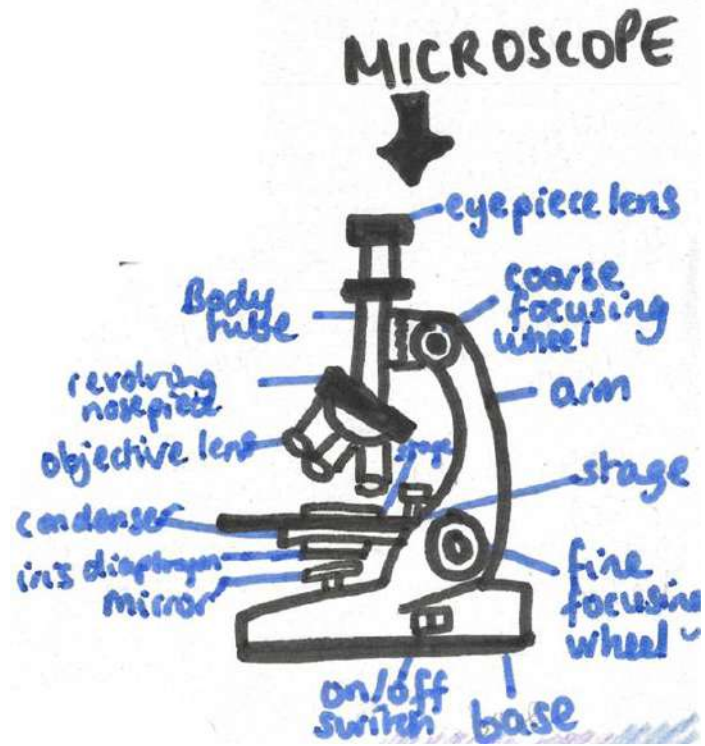 MICROSCOPE
eyepiece lens
coarse
focusing
wheel
Body
tube
revolving
nosepiece
arm
objective lens
stage
stage
condenser
iris diaphragm
mirror
fine
focusing
wheel
on/off
switch
base